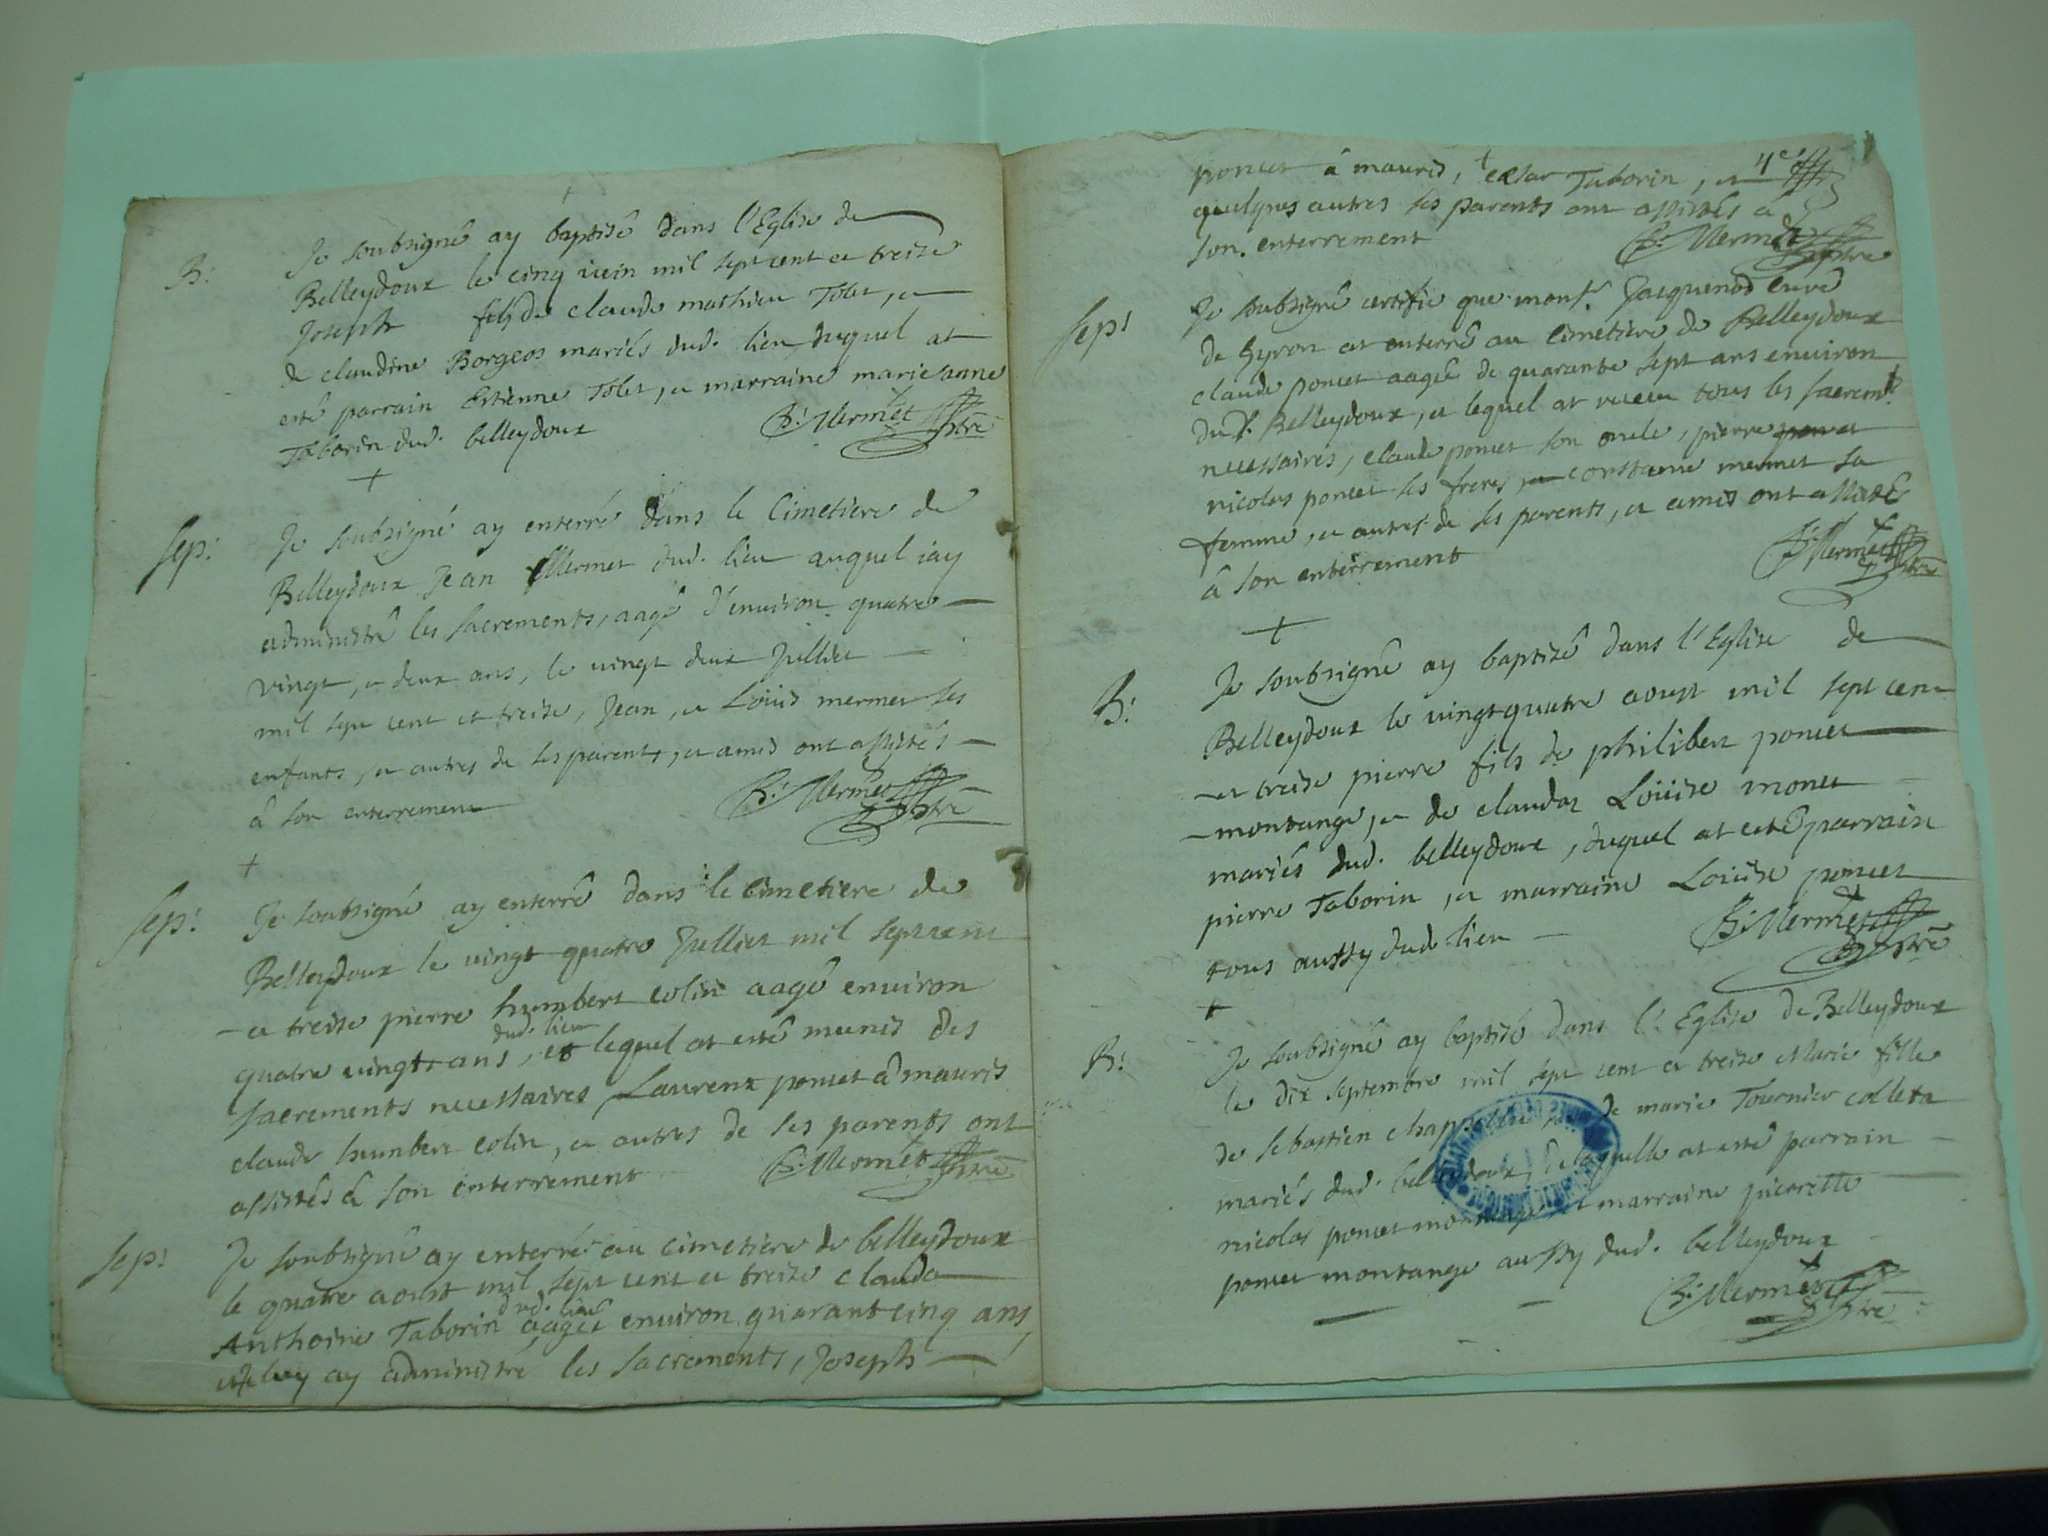 B: Je soubsigné ay baptisé dans l'Eglise de
Belleydoux le cinq iuin mil sept cent et treize
Joseph fils de claude mathieu Tolet, et
de claudine Borgeos mariés dud. lieu duquel at
esté parrain Estienne Tolet, et marraine marie anne
Taborin dud. belleydoux B: Mermet pbtre
+
Sep: Je soubsigné ay enterré dans le Cimetiere de
Belleydoux Jean Mermet dud. lieu auquel iay
administré les sacrements, aagé d'environ quatre
vingt, et deux ans, le vingt deux Juillet
mil sept cent et treize, Jean, et Loüis mermet ses
enfants, et autres de ses parents, et amis ont assistés
â son enterrement B: Mermet pbtre
+
Sep: Je soubsigné ay enterré dans le cimetiere de
Belleydoux le vingt quatre Juillet mil sept cent
et treize pierre humbert colin aagé environ
dud. lieu
quatre vingt ans, et lequel at esté munis des
sacrements necessaires Laurent poncet â mauris
claude humbert colin, et autres de ses parents ont
assistés â son enterrement B: Mermet pbtre
Sep: Je soubsigné ay enterré au cimetiere de belleydoux
le quatre aoust mil sept cent et treize claude
dud. lieu
Anthoine Taborin aagé environ quarant cinq ans
et luy ay administré les sacrements, Joseph
4e
poncet â mauris, cesar Taborin, et
quelques autres ses parents ont assistés a
son enterrement B: Mermet pbtre
Sep: Je soubsigné certifie que monsr. Jacquenod curé
de Gyron at enterré au Cimetiere de Belleydoux
claude poncet aagée de quarante sept ans environ
dud. Belleydoux, et lequel at receu tous les sacremts
necessaires, claude poncet son oncle, pierre poncet
nicolas poncet ses freres, et constance mermet sa
femme, et autres de ses parents, et amis ont assisté
â son enterrement B: Mermet pbtre
+
B: Je soubsigné ay baptisé dans l'Eglise de
Belleydoux le vingt quatre aoust mil sept cent
et treize pierre fils de philibert poncet
montange, et de claudaz Loüise monet
mariés dud. belleydoux, duquel at esté parrain
pierre Taborin, et marraine Loüise poncet
tous aussy dud. lieu B: Mermet pbtre
+
B: Je soubsigné ay baptisé dans l'Eglise de Belleydoux
le dix septembre mil sept cent et treize Marie fille
de sebastien et de marie Tournier colleta
mariés dud. belleydoux, de laquelle at esté parrain
nicolas poncet montange et marraine pierrette
poncet montange aussy dud. belleydoux
B: Mermet pbtre